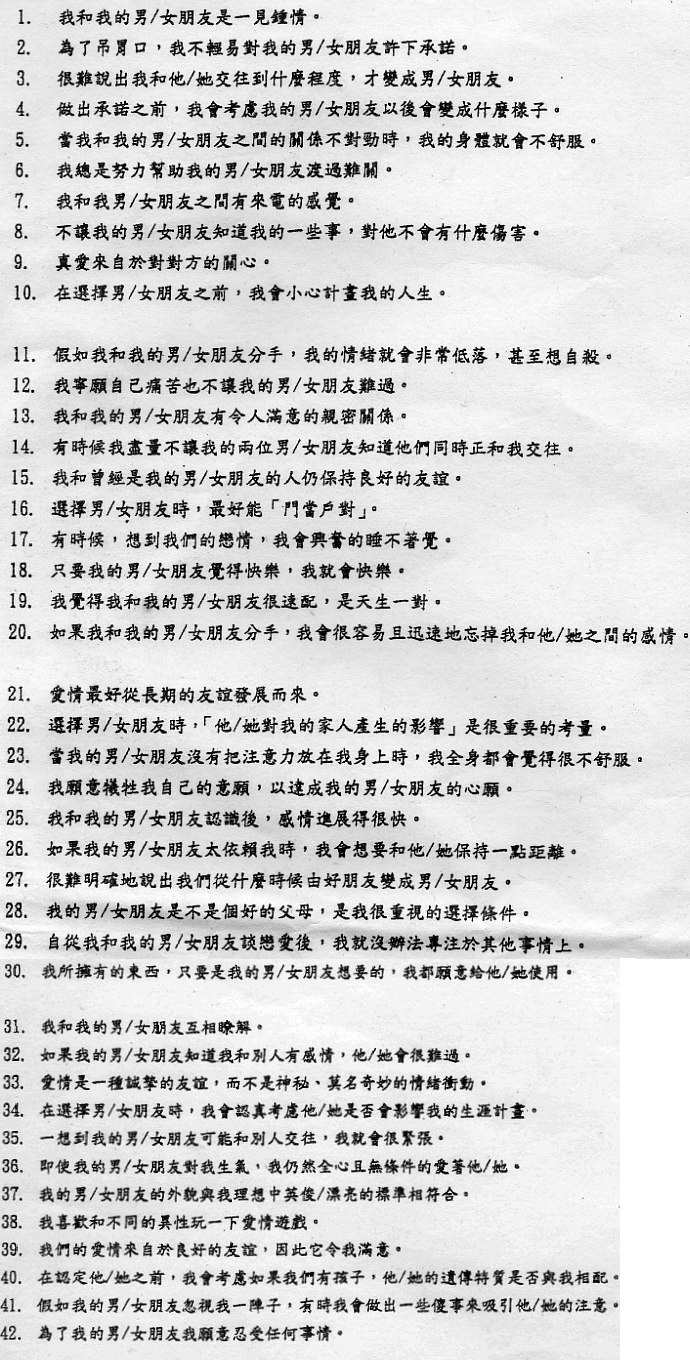 1. 我和我的男/女朋友是一見鍾情。
2. 為了吊胃口，我不輕易對我的男/女朋友許下承諾。
3. 很難說出我和他/她交往到什麼程度，才變成男/女朋友。
4. 做出承諾之前，我會考慮我的男/女朋友以後會變成什麼樣子。
5. 當我和我的男/女朋友之間的關係不對勁時，我的身體就會不舒服。
6. 我總是努力幫助我的男/女朋友渡過難關。
7. 我和我男/女朋友之間有來電的感覺。
8. 不讓我的男/女朋友知道我的一些事，對他不會有什麼傷害。
9. 真愛來自於對對方的關心。
10. 在選擇男/女朋友之前，我會小心計畫我的人生。
11. 假如我和我的男/女朋友分手，我的情緒就會非常低落，甚至想自殺。
12. 我寧願自己痛苦也不讓我的男/女朋友難過。
13. 我和我的男/女朋友有令人滿意的親密關係。
14. 有時候我盡量不讓我的兩位男/女朋友知道他們同時正和我交往。
15. 我和曾經是我的男/女朋友的人仍保持良好的友誼。
16. 選擇男/女朋友時，最好能「門當戶對」。
17. 有時候，想到我們的戀情，我會興奮的睡不著覺。
18. 只要我的男/女朋友覺得快樂，我就會快樂。
19. 我覺得我和我的男/女朋友很速配，是天生一對。
20. 如果我和我的男/女朋友分手，我會很容易且迅速地忘掉我和他/她之間的感情。
21. 愛情最好從長期的友誼發展而來。
22. 選擇男/女朋友時，「他/她對我的家人產生的影響」是很重要的考量。
23. 當我的男/女朋友沒有把注意力放在我身上時，我全身都會覺得很不舒服。
24. 我願意犧牲我自己的意願，以達成我的男/女朋友的心願。
25. 我和我的男/女朋友認識後，感情進展得很快。
26. 如果我的男/女朋友太依賴我時，我會想要和他/她保持一點距離。
27. 很難明確地說出我們從什麼時候由好朋友變成男/女朋友。
28. 我的男/女朋友是不是個好的父母，是我很重視的選擇條件。
29. 自從我和我的男/女朋友談戀愛後，我就沒辦法專注於其他事情上。
30. 我所擁有的東西，只要是我的男/女朋友想要的，我都願意給他/她使用。
31. 我和我的男/女朋友互相瞭解。
32. 如果我的男/女朋友知道我和別人有感情，他/她會很難過。
33. 愛情是一種誠摯的友誼，而不是神秘、莫名奇妙的情緒衝動。
34. 在選擇男/女朋友時，我會認真考慮他/她是否會影響我的生涯計畫。
35. 一想到我的男/女朋友可能和別人交往，我就會很緊張。
36. 即使我的男/女朋友對我生氣，我仍然全心且無條件的愛著他/她。
37. 我的男/女朋友的外貌與我理想中英俊/漂亮的標準相符合。
38. 我喜歡和不同的異性玩一下愛情遊戲。
39. 我們的愛情來自於良好的友誼，因此它令我滿意。
40. 在認定他/她之前，我會考慮如果我們有孩子，他/她的遺傳特質是否與我相配。
41. 假如我的男/女朋友忽視我一陣子，有時我會做出一些傻事來吸引他/她的注意。
42. 為了我的男/女朋友我願意忍受任何事情。